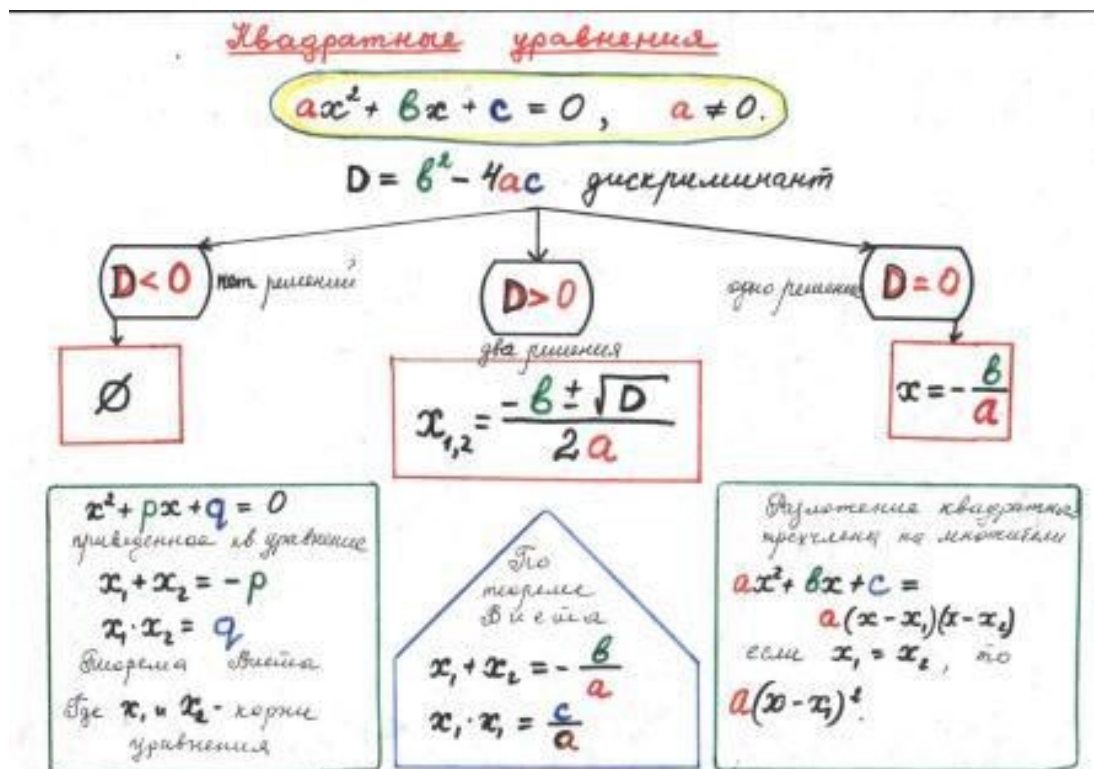 Квадратные уравнения
ax² + bx + c = 0, a ≠ 0.
D = b² - 4ac дискриминант
D < 0 нет решений
D > 0
два решения
одно решение D = 0
∅
x₁,₂ = (-b ± √D) / 2a
x = - b/a
x² + px + q = 0
приведенное кв. уравнение
x₁ + x₂ = -p
x₁ · x₂ = q
Теорема Виета
Где x₁ и x₂ - корни
уравнения
По
теореме
Виета
x₁ + x₂ = - b/a
x₁ · x₁ = c/a
Разложение квадратных
трехчлена на множители
ax² + bx + c =
a(x - x₁)(x - x₂)
если x₁ = x₂, то
a(x - x₁)².